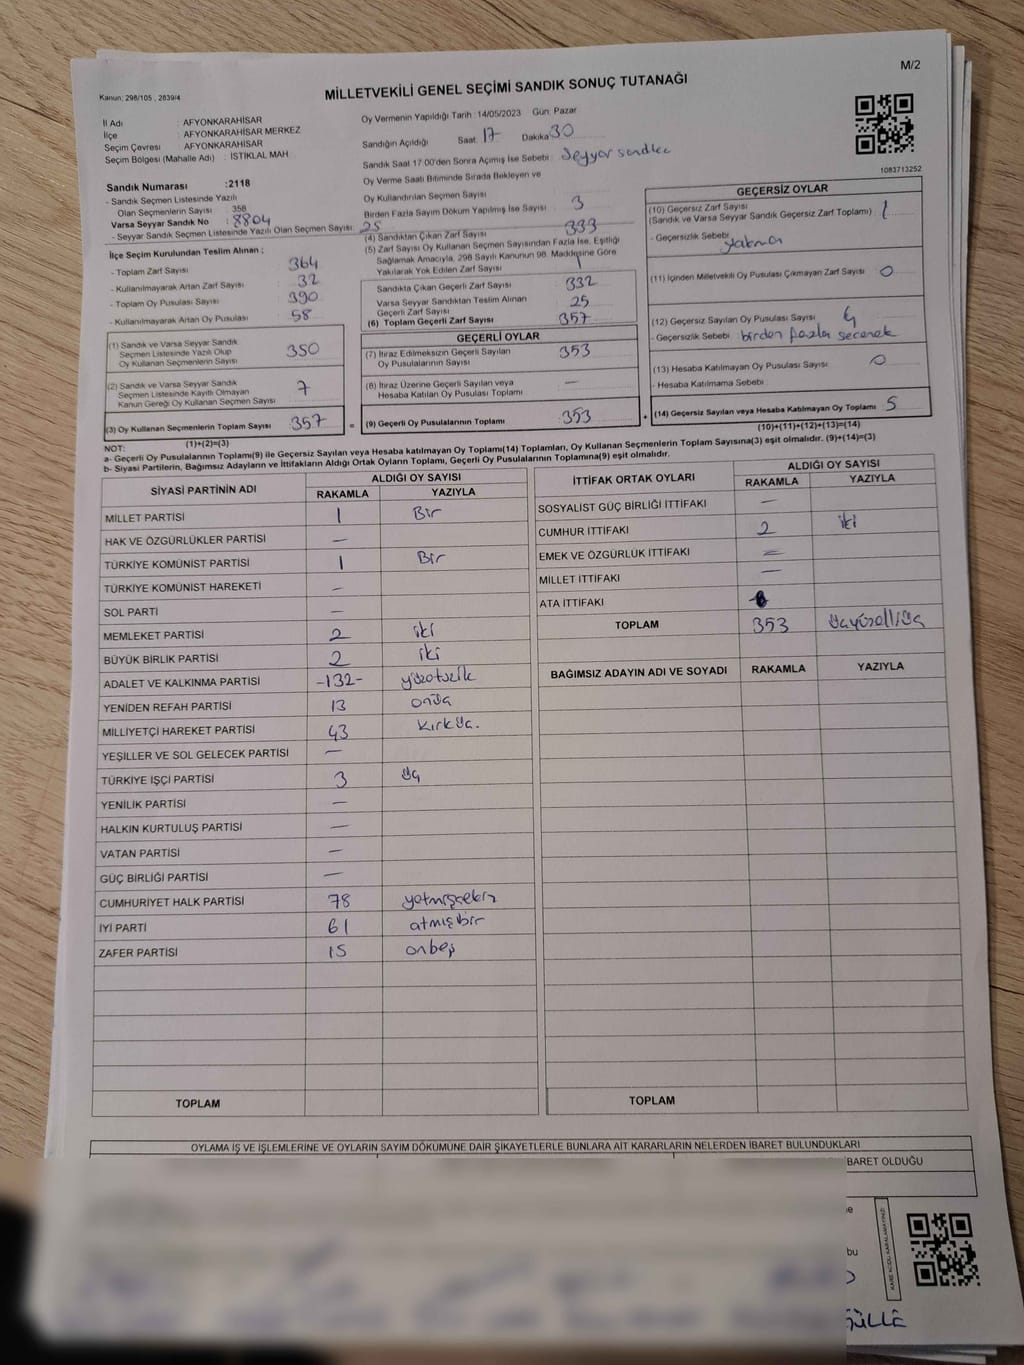 M/2
Kanun: 298/105 , 2839/4
MİLLETVEKİLİ GENEL SEÇİMİ SANDIK SONUÇ TUTANAĞI
İl Adı : AFYONKARAHİSAR
İlçe : AFYONKARAHİSAR MERKEZ
Seçim Çevresi : AFYONKARAHİSAR
Seçim Bölgesi (Mahalle Adı) : İSTİKLAL MAH
Sandık Numarası :2118
- Sandık Seçmen Listesinde Yazılı
Olan Seçmenlerin Sayısı : 358
Varsa Seyyar Sandık No : 8804
- Seyyar Sandık Seçmen Listesinde Yazılı Olan Seçmen Sayısı: 25
İlçe Seçim Kurulundan Teslim Alınan ;
- Toplam Zarf Sayısı : 364
- Kullanılmayarak Artan Zarf Sayısı : 32
- Toplam Oy Pusulası Sayısı : 390
- Kullanılmayarak Artan Oy Pusulası : 58
(1) Sandık ve Varsa Seyyar Sandık
Seçmen Listesinde Yazılı Olup
Oy Kullanan Seçmenlerin Sayısı 350
(2) Sandık ve Varsa Seyyar Sandık
Seçmen Listesinde Kayıtlı Olmayan
Kanun Gereği Oy Kullanan Seçmen Sayısı 7
(3) Oy Kullanan Seçmenlerin Toplam Sayısı 357
(1)+(2)=(3)
Oy Vermenin Yapıldığı Tarih :14/05/2023 Gün: Pazar
Sandığın Açıldığı Saat: 17 Dakika: 30
Sandık Saat 17:00'den Sonra Açılmış İse Sebebi : Seyyar sandık
Oy Verme Saati Bitiminde Sırada Bekleyen ve
Oy Kullandırılan Seçmen Sayısı : 3
Birden Fazla Sayım Döküm Yapılmış İse Sayısı :
(4) Sandıktan Çıkan Zarf Sayısı : 333
(5) Zarf Sayısı Oy Kullanan Seçmen Sayısından Fazla İse, Eşitliği
Sağlamak Amacıyla, 298 Sayılı Kanunun 98. Maddesine Göre
Yakılarak Yok Edilen Zarf Sayısı : 1
Sandıkta Çıkan Geçerli Zarf Sayısı : 332
Varsa Seyyar Sandıktan Teslim Alınan
Geçerli Zarf Sayısı : 25
(6) Toplam Geçerli Zarf Sayısı : 357
GEÇERLİ OYLAR
(7) İtiraz Edilmeksizin Geçerli Sayılan
Oy Pusulalarının Sayısı : 353
(8) İtiraz Üzerine Geçerli Sayılan veya
Hesaba Katılan Oy Pusulası Toplamı : —
= (9) Geçerli Oy Pusulalarının Toplamı : 353
1083713252
GEÇERSİZ OYLAR
(10) Geçersiz Zarf Sayısı
(Sandık ve Varsa Seyyar Sandık Geçersiz Zarf Toplamı) : 1
- Geçersizlik Sebebi : yakma
(11) İçinden Milletvekili Oy Pusulası Çıkmayan Zarf Sayısı : 0
(12) Geçersiz Sayılan Oy Pusulası Sayısı : 4
- Geçersizlik Sebebi : birden fazla seçenek
(13) Hesaba Katılmayan Oy Pusulası Sayısı : 0
- Hesaba Katılmama Sebebi :
+ (14) Geçersiz Sayılan veya Hesaba Katılmayan Oy Toplamı : 5
(10)+(11)+(12)+(13)=(14)
NOT:
a- Geçerli Oy Pusulalarının Toplamı(9) ile Geçersiz Sayılan veya Hesaba katılmayan Oy Toplamı(14) Toplamları, Oy Kullanan Seçmenlerin Toplam Sayısına(3) eşit olmalıdır. (9)+(14)=(3)
b- Siyasi Partilerin, Bağımsız Adayların ve İttifakların Aldığı Ortak Oyların Toplamı, Geçerli Oy Pusulalarının Toplamına(9) eşit olmalıdır.
SİYASİ PARTİNİN ADI ALDIĞI OY SAYISI
RAKAMLA YAZIYLA
MİLLET PARTİSİ 1 Bir
HAK VE ÖZGÜRLÜKLER PARTİSİ —
TÜRKİYE KOMÜNİST PARTİSİ 1 Bir
TÜRKİYE KOMÜNİST HAREKETİ —
SOL PARTİ —
MEMLEKET PARTİSİ 2 iki
BÜYÜK BİRLİK PARTİSİ 2 iki
ADALET VE KALKINMA PARTİSİ -132- yüzotuziki
YENİDEN REFAH PARTİSİ 13 onüç
MİLLİYETÇİ HAREKET PARTİSİ 43 kırküç.
YEŞİLLER VE SOL GELECEK PARTİSİ —
TÜRKİYE İŞÇİ PARTİSİ 3 üç
YENİLİK PARTİSİ —
HALKIN KURTULUŞ PARTİSİ —
VATAN PARTİSİ —
GÜÇ BİRLİĞİ PARTİSİ —
CUMHURİYET HALK PARTİSİ 78 yetmişsekiz
İYİ PARTİ 61 atmışbir
ZAFER PARTİSİ 15 onbeş
TOPLAM
İTTİFAK ORTAK OYLARI ALDIĞI OY SAYISI
RAKAMLA YAZIYLA
SOSYALİST GÜÇ BİRLİĞİ İTTİFAKI —
CUMHUR İTTİFAKI 2 iki
EMEK VE ÖZGÜRLÜK İTTİFAKI =
MİLLET İTTİFAKI —
ATA İTTİFAKI
TOPLAM 353 üçyüzelliüç
BAĞIMSIZ ADAYIN ADI VE SOYADI RAKAMLA YAZIYLA
TOPLAM
OYLAMA İŞ VE İŞLEMLERİNE VE OYLARIN SAYIM DÖKÜMÜNE DAİR ŞİKAYETLERLE BUNLARA AİT KARARLARIN NELERDEN İBARET BULUNDUKLARI
İBARET OLDUĞU
KARE KODU KARALAMAYINIZ!